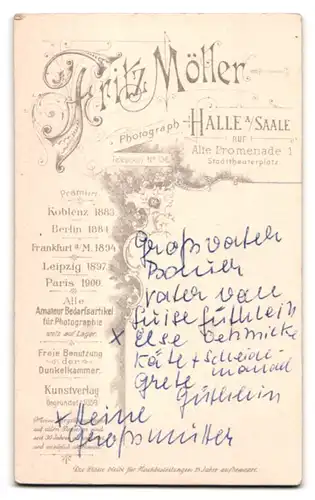 Fritz Möller
Photograph
HALLE A/SAALE
NUR
Alte Promenade 1
Stadttheaterplatz
Prämiirt
Koblenz 1883
Berlin 1884
Frankfurt a/M. 1894
Leipzig 1897
Paris 1900.
Alle
Amateur Bedarfsartikel
für Photographie
stets auf Lager.
Freie Benutzung
der
Dunkelkammer.
Kunstverlag
Gegründet 1859.
Großvater
Bauer
Vater von
Luise Güthlein
x Else Oehmicke
Käte + Scheide-
Grete mantel
Güthlein
x Meine
Großmutter
Die Platte bleibt für Nachbestellungen 15 Jahre aufbewahrt.